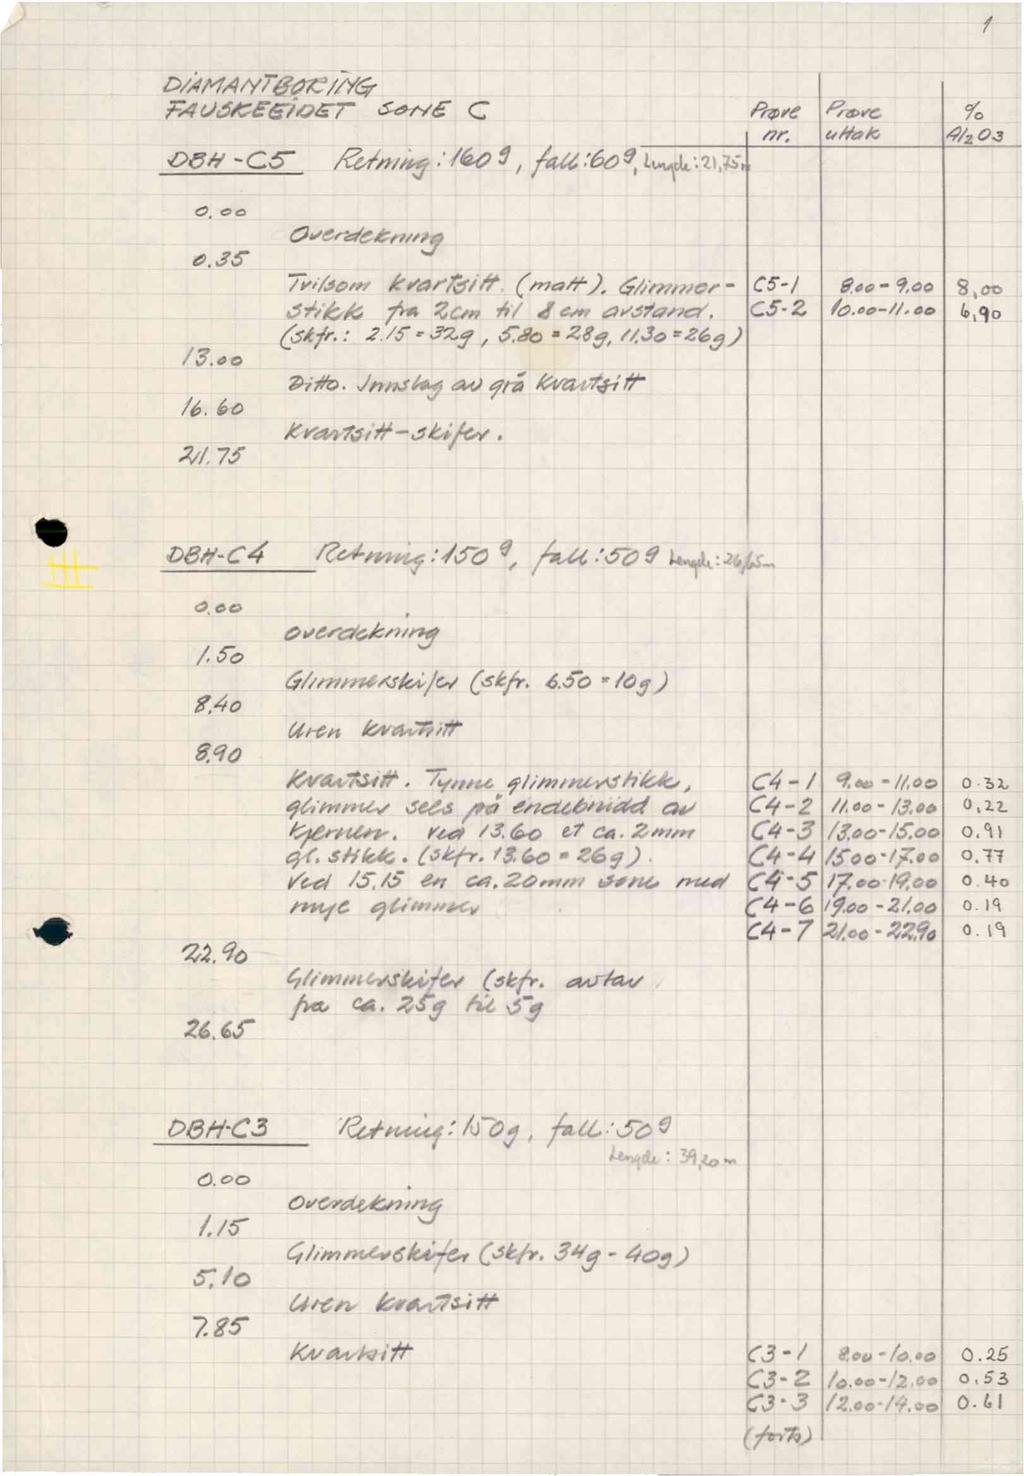 1
DIAMANTBORING
FAUSKEEIDET SONE C
Prøve nr.
Prøve uttak
% Al2O3
DBH-C5 Retning: 160g, fall: 60g, Lengde: 21,75m
0.00
Overdekning
0.35
Tvilsom kvartsitt. (matt). Glimmer- C5-1 8.00-9.00 8,00
stikk fra 2cm til 8cm avstand. C5-2 10.00-11.00 6,90
(skfr.: 2.15=32g, 5.80=28g, 11.30=26g)
13.00
Ditto. Innslag av grå kvartsitt
16.60
Kvartsitt-skifer.
21.75
DBH-C4 Retning: 150g, fall: 50g Lengde: 26,65m
0.00
overdekning
1.50
Glimmerskifer (skfr. 6.50=10g)
8.40
Uren kvartsitt
8.90
Kvartsitt. Tynne glimmerstikk, C4-1 9.00-11.00 0.32
glimmer sees på endebrudd av C4-2 11.00-13.00 0,22
kjernen. Ved 13.60 et ca. 2mm C4-3 13.00-15.00 0.91
gl. stikk. (skfr. 13.60=26g). C4-4 15.00-17.00 0.77
Ved 15.15 en ca. 20mm sone med C4-5 17.00-19.00 0.40
mye glimmer C4-6 19.00-21.00 0.19
C4-7 21.00-22.90 0.19
22.90
Glimmerskifer (skfr. avtar
fra ca. 25g til 5g
26.65
DBH-C3 Retning: 150g, fall: 50g
Lengde: 39,20m
0.00
Overdekning
1.15
Glimmerskifer (skfr. 34g-40g)
5.10
Uren kvartsitt
7.85
Kvartsitt C3-1 8.00-10.00 0.25
C3-2 10.00-12.00 0,53
C3-3 12.00-14.00 0.61
(forts)